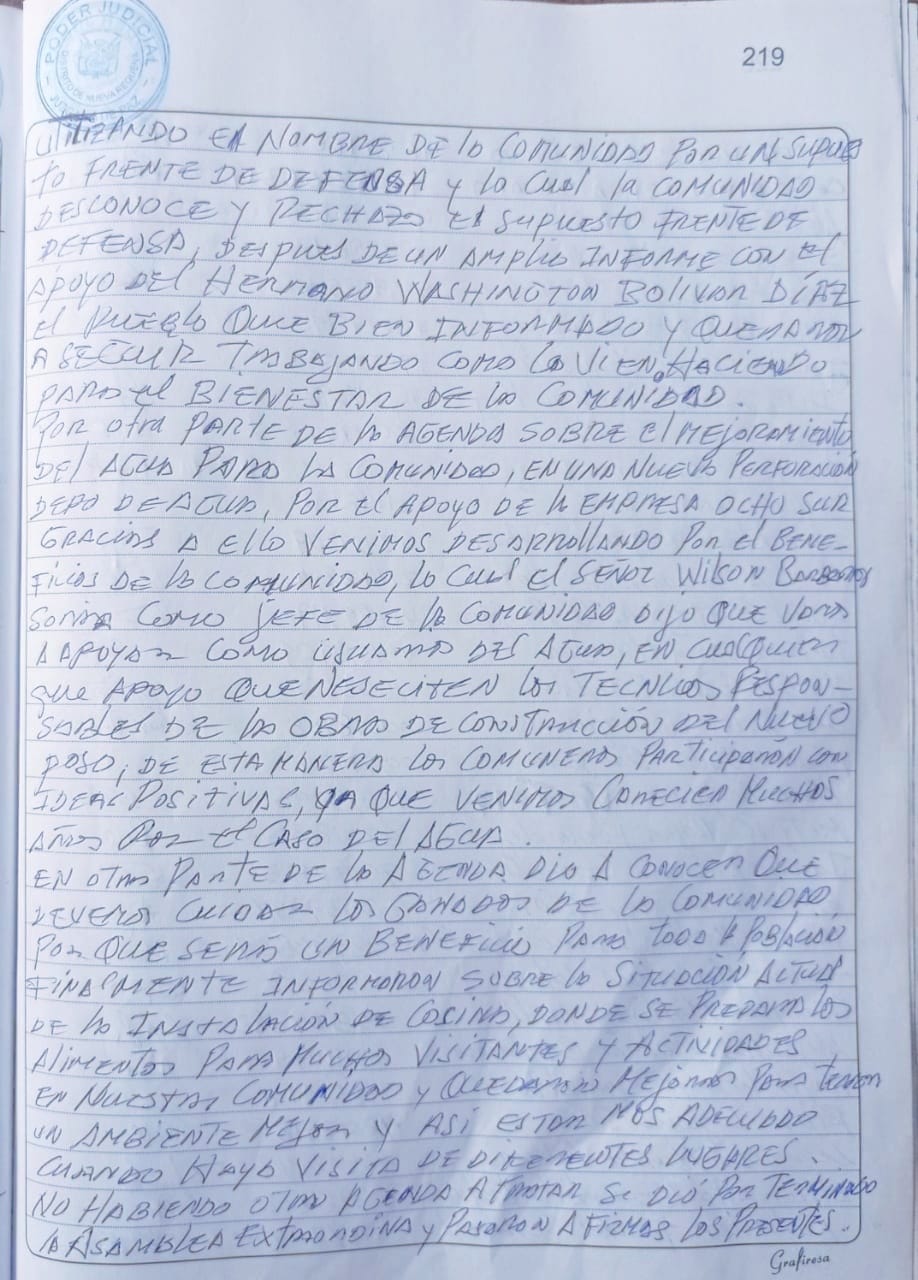 PODER JUDICIAL
219
UTILIZANDO EN NOMBRE DE lA COMUNIDAD POR UN SUPUES
TO FRENTE DE DEFENSA y lo CUAL lA COMUNIDAD
DESCONOCE Y RECHAZA El SUPUESTO FRENTE DE
DEFENSA, DESPUES DE UN AMPLIO INFORME CON El
APOYO DEL HERMANO WASHINGTON BOLIVAR DÍAZ
El PUEBLO QUE BIEN INFORMADO Y QUEDAMOS
A SEGUIR TRABAJANDO COMO LO VIEN HACIENDO
PARA El BIENESTAR DE LA COMUNIDAD.
POR OTRA PARTE DE LA AGENDA SOBRE El MEJORAMIENTO
DEL AGUA PARA LA COMUNIDAD, EN UNA NUEVA PERFORACIÓN
DE AGUA, POR El APOYO DE LA EMPRESA OCHO SUR
GRACIAS A ELLO VENIMOS DESARROLLANDO POR El BENE-
FICIOS DE LA COMUNIDAD, lo CUAL El SEÑOR WILSON BARBARAN
SORIA COMO JEFE DE LA COMUNIDAD DIJO QUE VAMOS
A APOYAR COMO USUARIO DEL AGUA, EN CUALQUIER
QUE APOYO QUE NESECITEN LOS TECNICOS RESPON-
SABLES DE LA OBRA DE CONSTRUCCIÓN DEL NUEVO
POSO, DE ESTA MANERA LOS COMUNEROS PARTICIPARÓN CON
IDEAS POSITIVAS, YA QUE VENIMOS CARECIER MUCHOS
AÑOS POR El CASO DEL AGUA.
EN OTRA PARTE DE LA AGENDA DIO A CONOCER QUE
DEVEMOS CUIDAR LOS GANADOS DE LA COMUNIDAD
POR QUE SERÁ UN BENEFICIO PARA TODA LA POBLACIÓN
FINALMENTE INFORMARON SOBRE LA SITUACIÓN ACTUAL
DE LA INSTALACIÓN DE COSINA, DONDE SE PREPARA LOS
ALIMENTOS PARA MUCHOS VISITANTES Y ACTIVIDADES
EN NUESTRA COMUNIDAD Y QUEDAMOS MEJORAR PARA TENER
UN AMBIENTE MEJOR Y ASÍ ESTAR MÁS ADECUADO
CUANDO HAYA VISITA DE DIFERENTES LUGARES.
NO HABIENDO OTRA AGENDA A TRATAR SE DIÓ POR TERMINADO
LA ASAMBLEA EXTRAORDINA Y PASARON A FIRMAR LOS PRESENTES.
Grafiresa